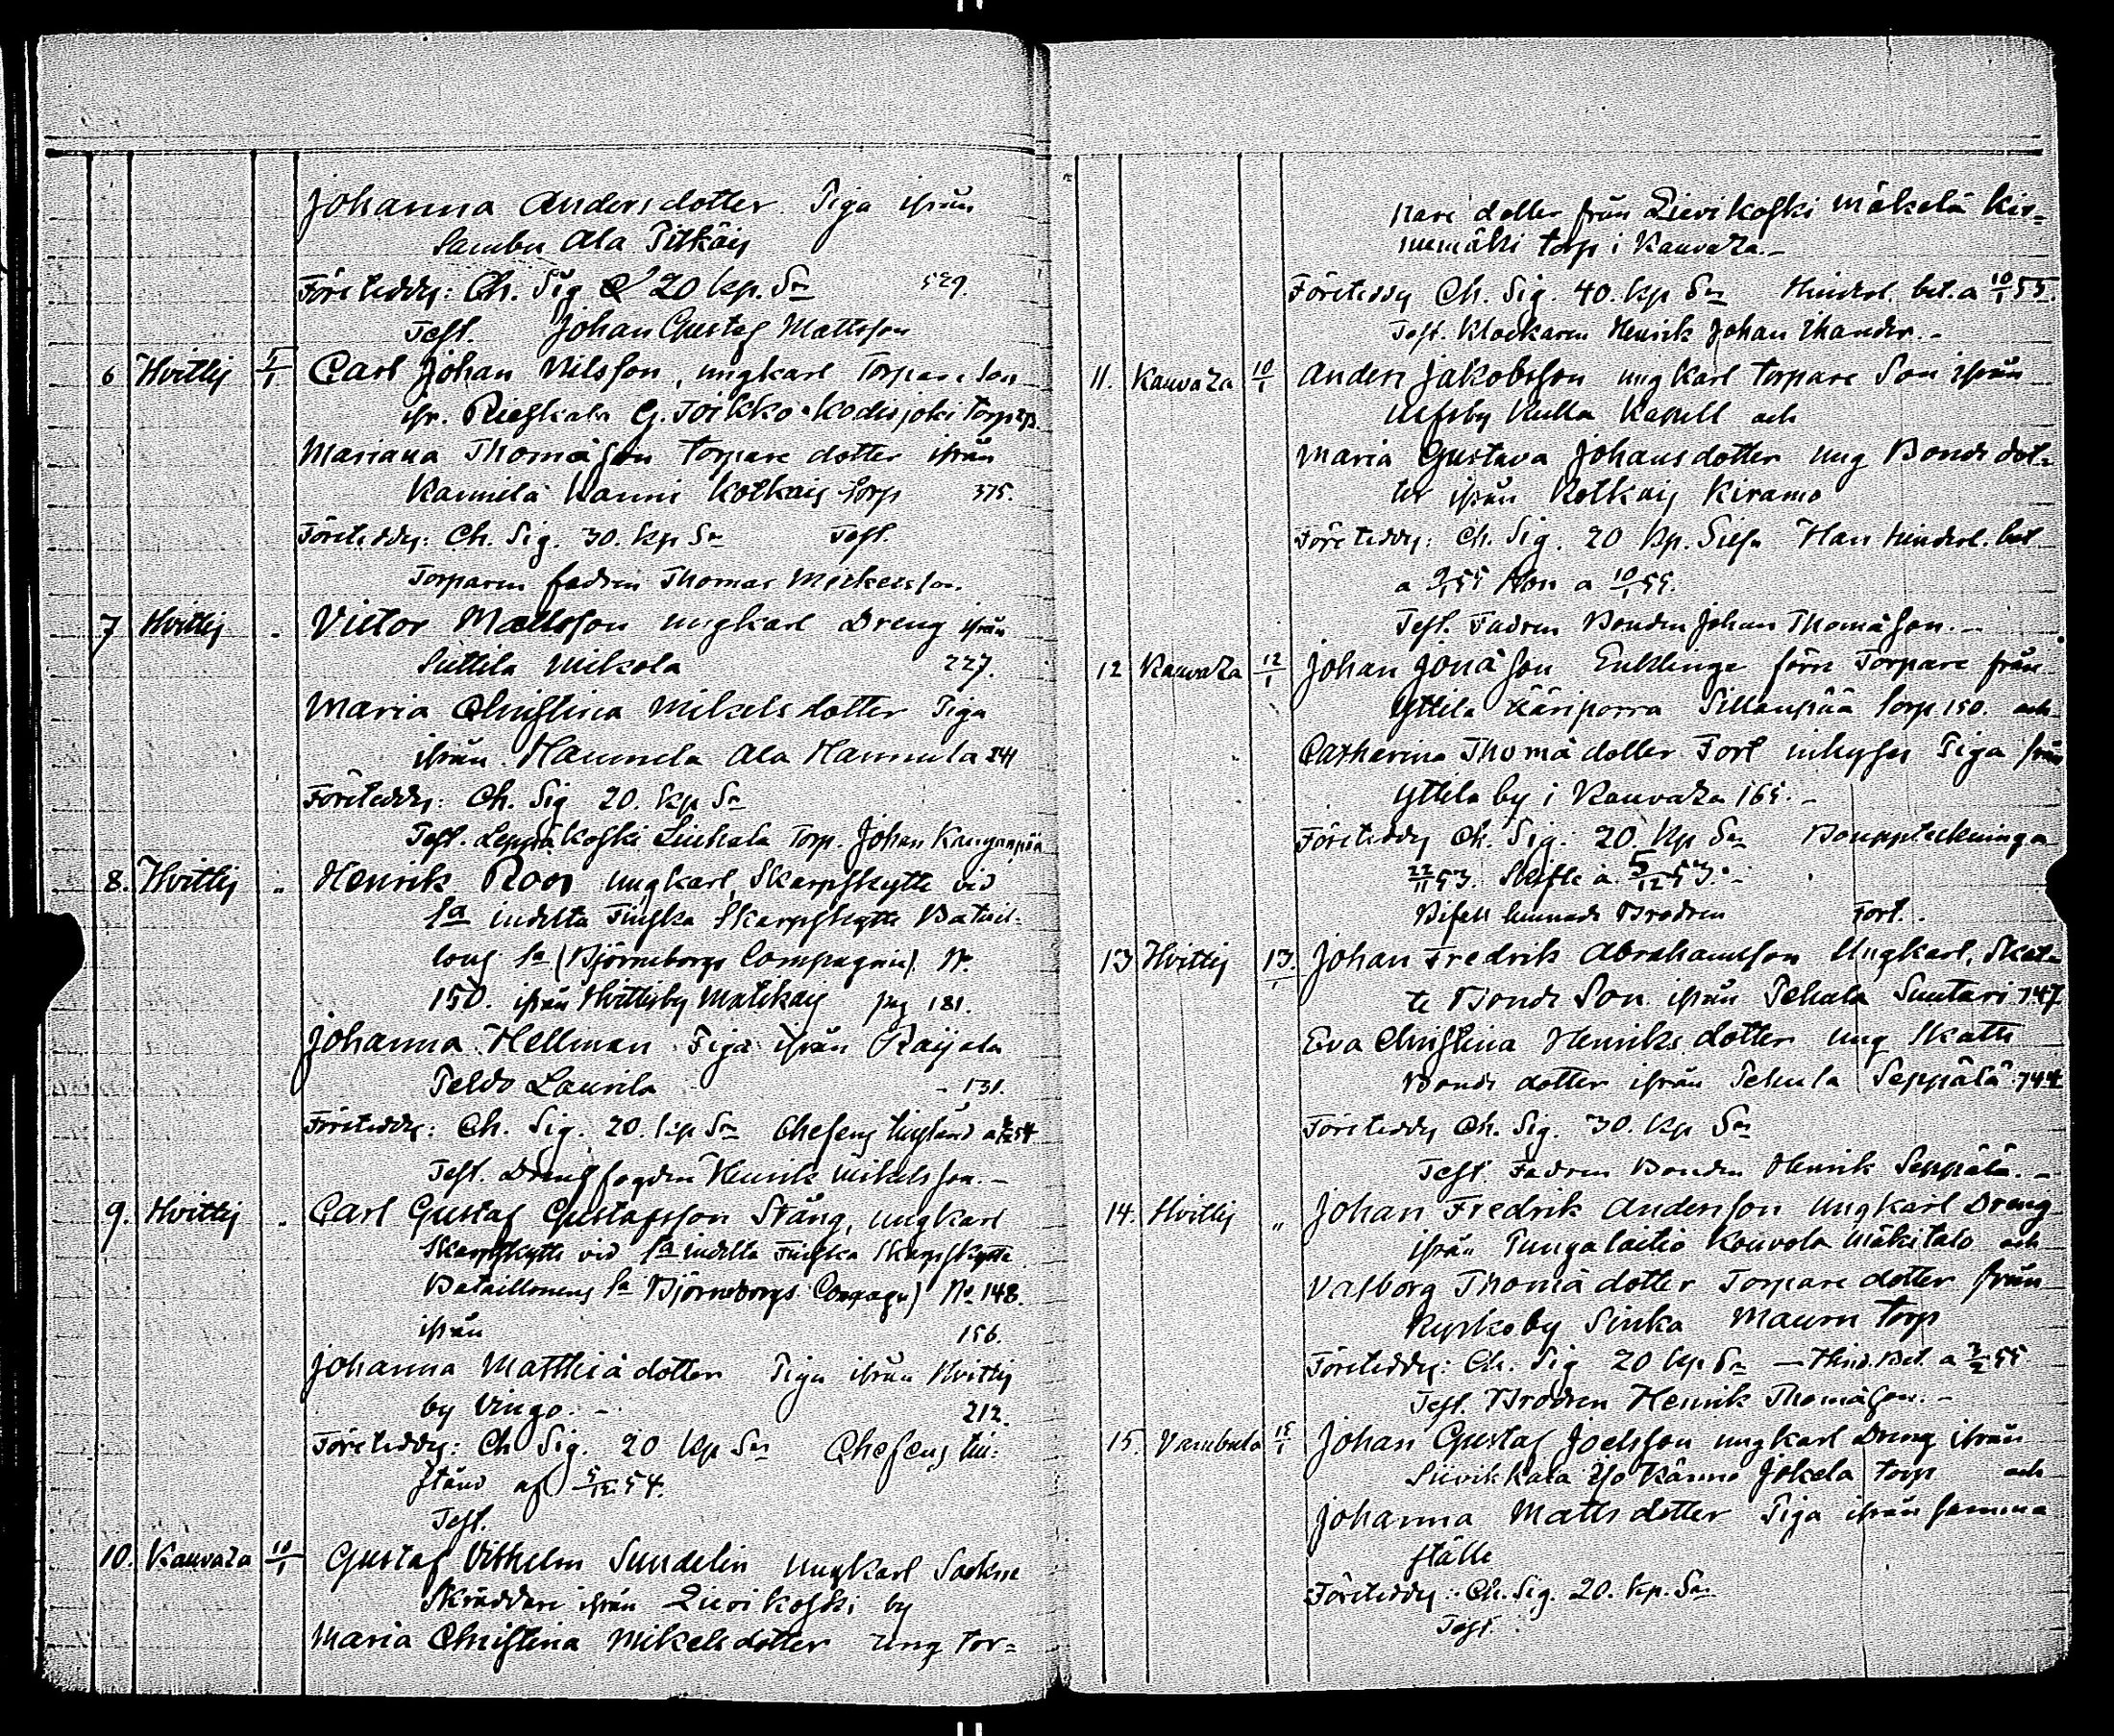 Johanna Andersdotter Piga ifrån
Sambu Ala Pitkäis
Företeddes: Ch. Sig. 20 kp. Sr 529.
Test. Johan Gustaf Mattsson
6 Hvittis 5/1 Carl Johan Nilsson, ungkarl Torpare Son
ifr. Rieskala G. Joikko Kodisjoki torp
Mariana Thomasson Torpare dotter ifrån
Karmela Kanni Kotkais torp 375.
Företeddes: Ch. Sig. 30. kp Sr Test.
Torparen fadren Thomas Mickelsson.
7 Hvittis " Victor Mattsson ungkarl Dreng ifrån
Suttila Mikola 227.
Maria Christina Mikelsdotter Piga
ifrån Hannula Ala Hannula 241
Företeddes: Ch. Sig 20. kp Sr
Test. Leppäkoski Liukala Torp. Johan Kanganpää
8. Hvittis " Henrik Roos ungkarl, Skarpskytte vid
1a indelta Finska Skarpskytte Batail-
long 1a (Björneborgs Compagnie) No.
150. ifrån Hvittisby Matikais pag 181.
Johanna Hellman Piga ifrån Raijala
Peldo Laurila - 131.
Företeddes: Ch. Sig. 20. kp Sr Chefens tilstånd a 54
Test. Drengfogden Henrik Mikelsson. -
9. Hvittis " Carl Gustaf Gustafsson Stång, ungkarl
Skarpskytte vid 1a indelta Finska Skarpskytte
Bataillonens 1a Björneborgs Compagn) No. 148.
ifrån 156.
Johanna Matthiädotter Piga ifrån Hvittis
by Vingo. - 212.
Företeddes: Ch Sig. 20 kp Sr Chefens til-
stånd af 5/12 54.
Test.
10. Kauvaza 10/1 Gustaf Vilhelm Sundelin ungkarl Sockne
Skräddare ifrån Lievikoski by
Maria Christina Mikelsdotter ung tor=
pare dotter från Lievikoski Mäkelä Kir=
numäki torp i Kauvaza. -
Företeddes Ch. Sig. 40. kp Sr Hinderl. bet. a 10/1 55.
Test. Klockaren Henrik Johan Thander. -
11. Kauvaza 10/1 Anders Jakobsson ungkarl torpare Son ifrån
Ulfsby Kulla Kapell och
Maria Gustava Johansdotter ung Bonde dot=
ter ifrån Kotkais Kiramo
Företeddes: Ch. Sig. 20 kp. Silfr Han hinderl. bet
a 9/1 55 Hon a 10/1 55.
Test. Fadren Bonden Johan Thomässon. -
12 Kauvaza 12/1 Johan Jonässon Enklinge förre Torpare från
Yttila Kääriporra Sillanpää torp 150. och
Catharina Thomädotter Fort inhyses Piga från
Yttila by i Kauvaza 165. -
Företeddes Ch. Sig. 20. kp Sr Bouppteckning a
22/11 53. Skifte a. 5/12 53. -
Bifall lemnade Brodren Fort.
13 Hvittis 13/1 Johan Fredrik Abrahamsson Ungkarl, Skat=
te Bonde Son ifrån Pehula Suutari 747
Eva Christina Henriksdotter ung Skatte
Bonde dotter ifrån Pehula Seppälä 744
Företeddes Ch. Sig. 30. kp Sr
Test. Fadren Bonden Henrik Seppälä. -
14. Hvittis " Johan Fredrik Andersson Ungkarl Dreng
ifrån Pungalaitio Kouvola Mäkitalo och
Valborg Thomädotter Torpare dotter från
Kyrkoby Sinka Maurn torp
Företeddes: Ch. Sig 20 kp Sr - Hind. Bet. a 3/2 55
Test. Brodren Henrik Thomässon. -
15. Vambula 15/1 Johan Gustaf Joelsson ungkarl Dreng ifrån
Siivikkala Iso Känni Jokela torp och
Johanna Mattsdotter Piga ifrån samma
ställe
Företeddes: Ch. Sig. 20. kp. Sr
Test.